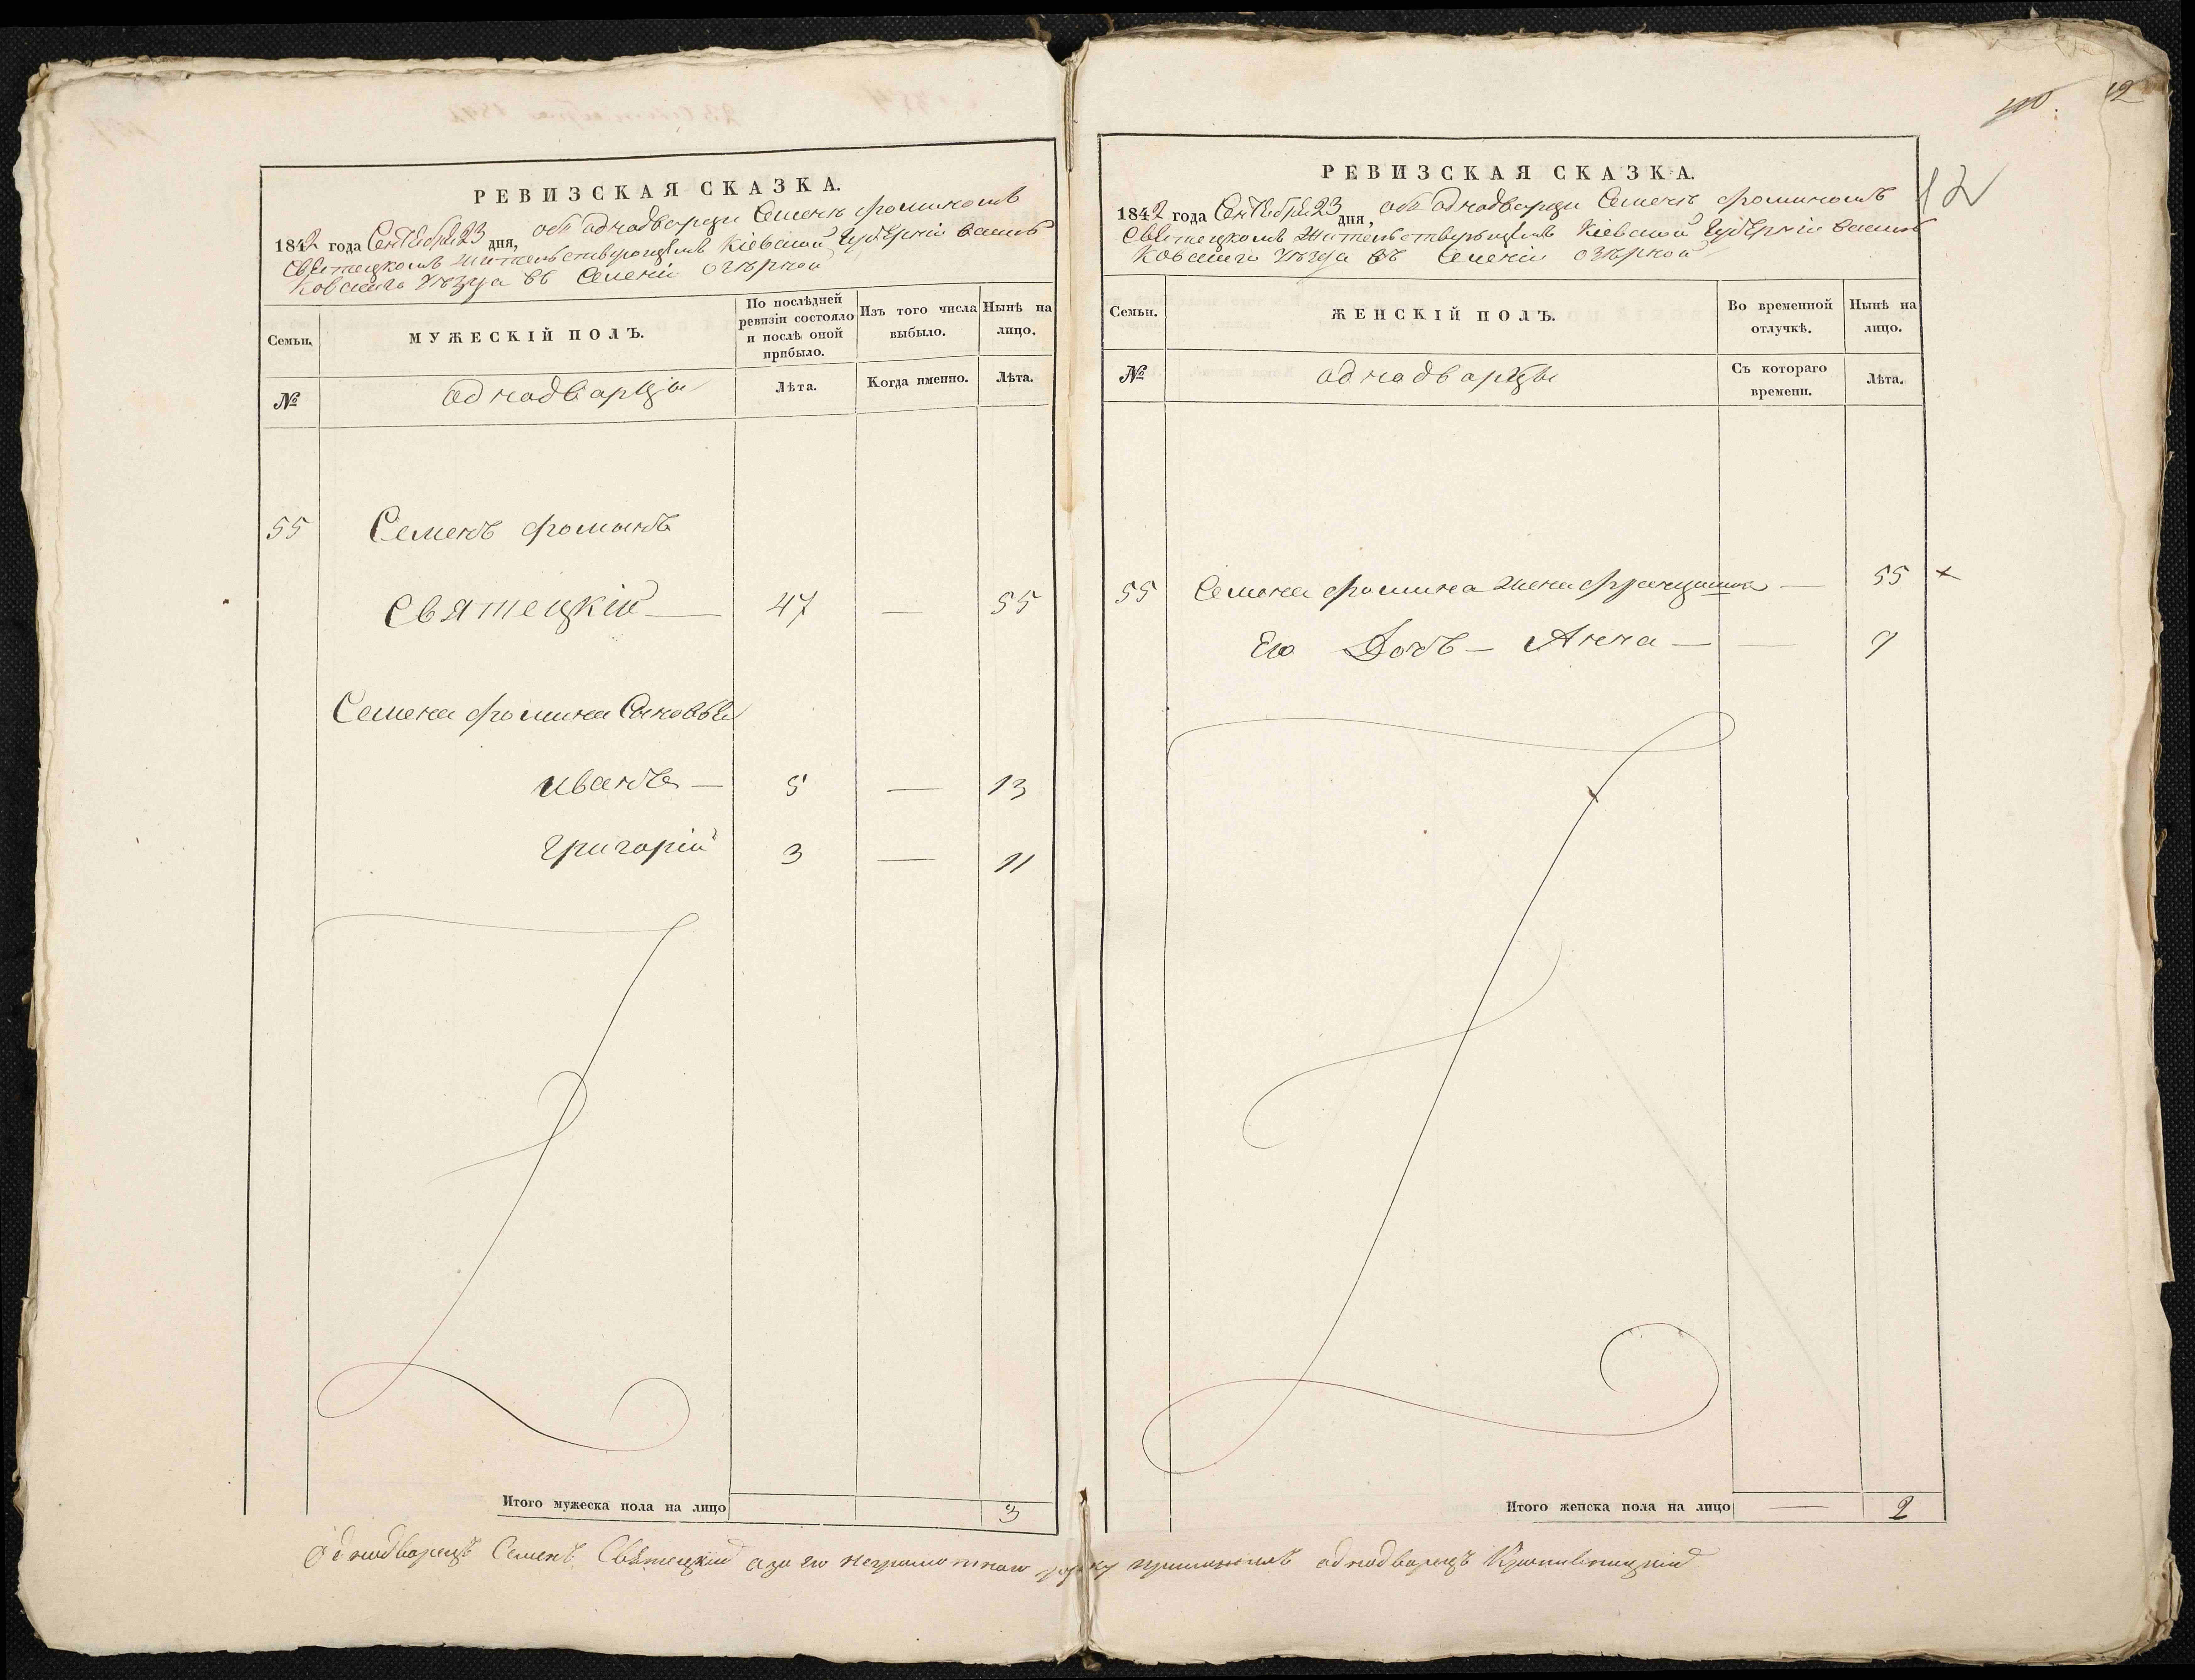 РЕВИЗСКАЯ СКАЗКА.
1842 года Сентября 23 дня, объ однодворци Семенъ Фоминомъ
Святецкомъ жительствующемъ Кіевской Губерніи Василь
ковского уѣзда въ Селеніи озѣрной
Семьи.
МУЖЕСКІЙ ПОЛЪ.
По послѣдней ревизіи состояло и послѣ оной прибыло.
Изъ того числа выбыло.
Нынѣ на лицо.
№
аднодворци
Лѣта.
Когда именно.
Лѣта.
55 Семенъ Фоминъ
Святецкій — 47 — 55
Семена Фомина Сыновья
Иванъ — 5 — 13
Григорій 3 — 11
Итого мужеска пола на лицо 3
12
12
РЕВИЗСКАЯ СКАЗКА.
1842 года Сентября 23 дня, объ однодворци Семенъ Фоминомъ
Святецкомъ жительствующемъ Кіевской Губерніи Василь
ковского уѣзда въ Селеніи озѣрной
Семьи.
ЖЕНСКІЙ ПОЛЪ.
Во временной отлучкѣ.
Нынѣ на лицо.
№
аднодворцы
Съ котораго времени.
Лѣта.
55 Семена Фомина жена Францишка — 55 ×
Его Дочь — Анна — — 9
Итого женска пола на лицо — 2
Однодворецъ Семенъ Святецкій а за его неграмотного руку приложилъ однодворецъ